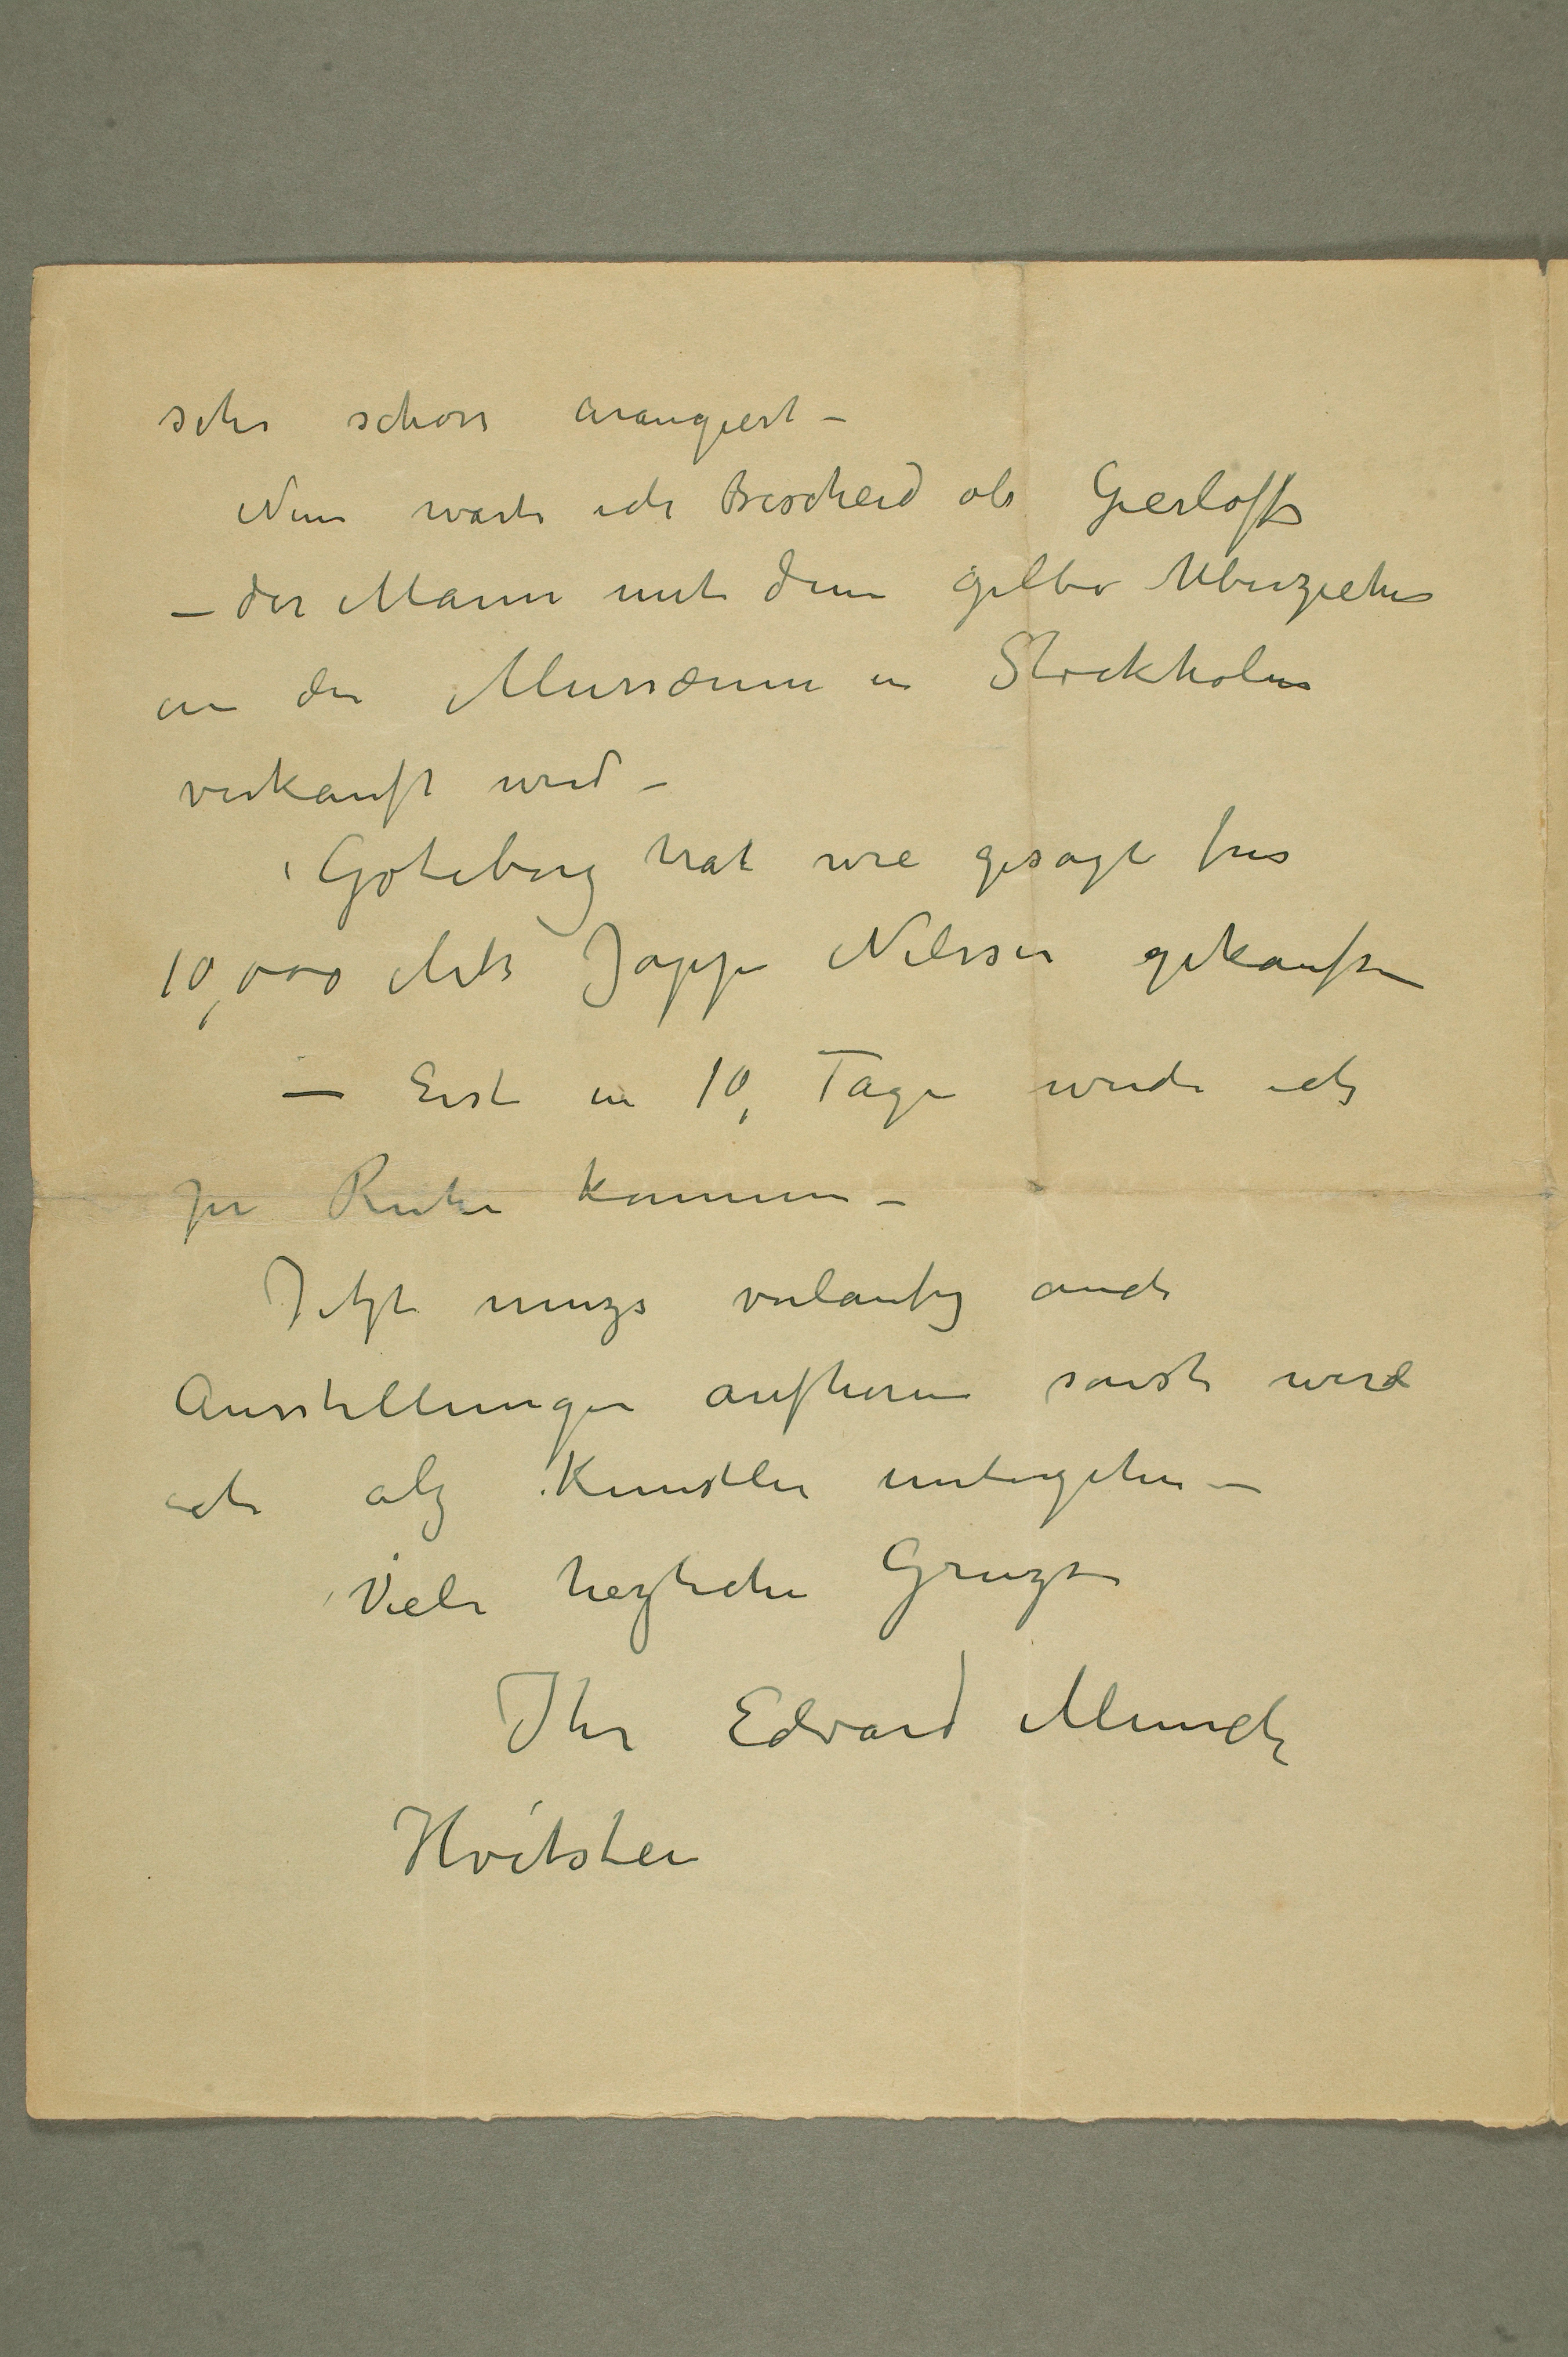 sehr schön arangiert –
Nun warte ich Bescheid ob Gierløff
– der Mann mit dem gelben Uberzieher
an den Mussæum in Stockholm
verkauft wird –
Göteborg hat wie gesagt für
10,000 Mk Jappe Nilssen gekauft –
– Erst in 10, Tage werde ich
zu Ruhe kommen –
Jetzt muzs vorlaufig auch
Ausstellungen aufhören sonst werde
ich alz Kunstler untergehen –
Viele hezliche Gruzse
Ihr Edvard Munch
Hvitsten